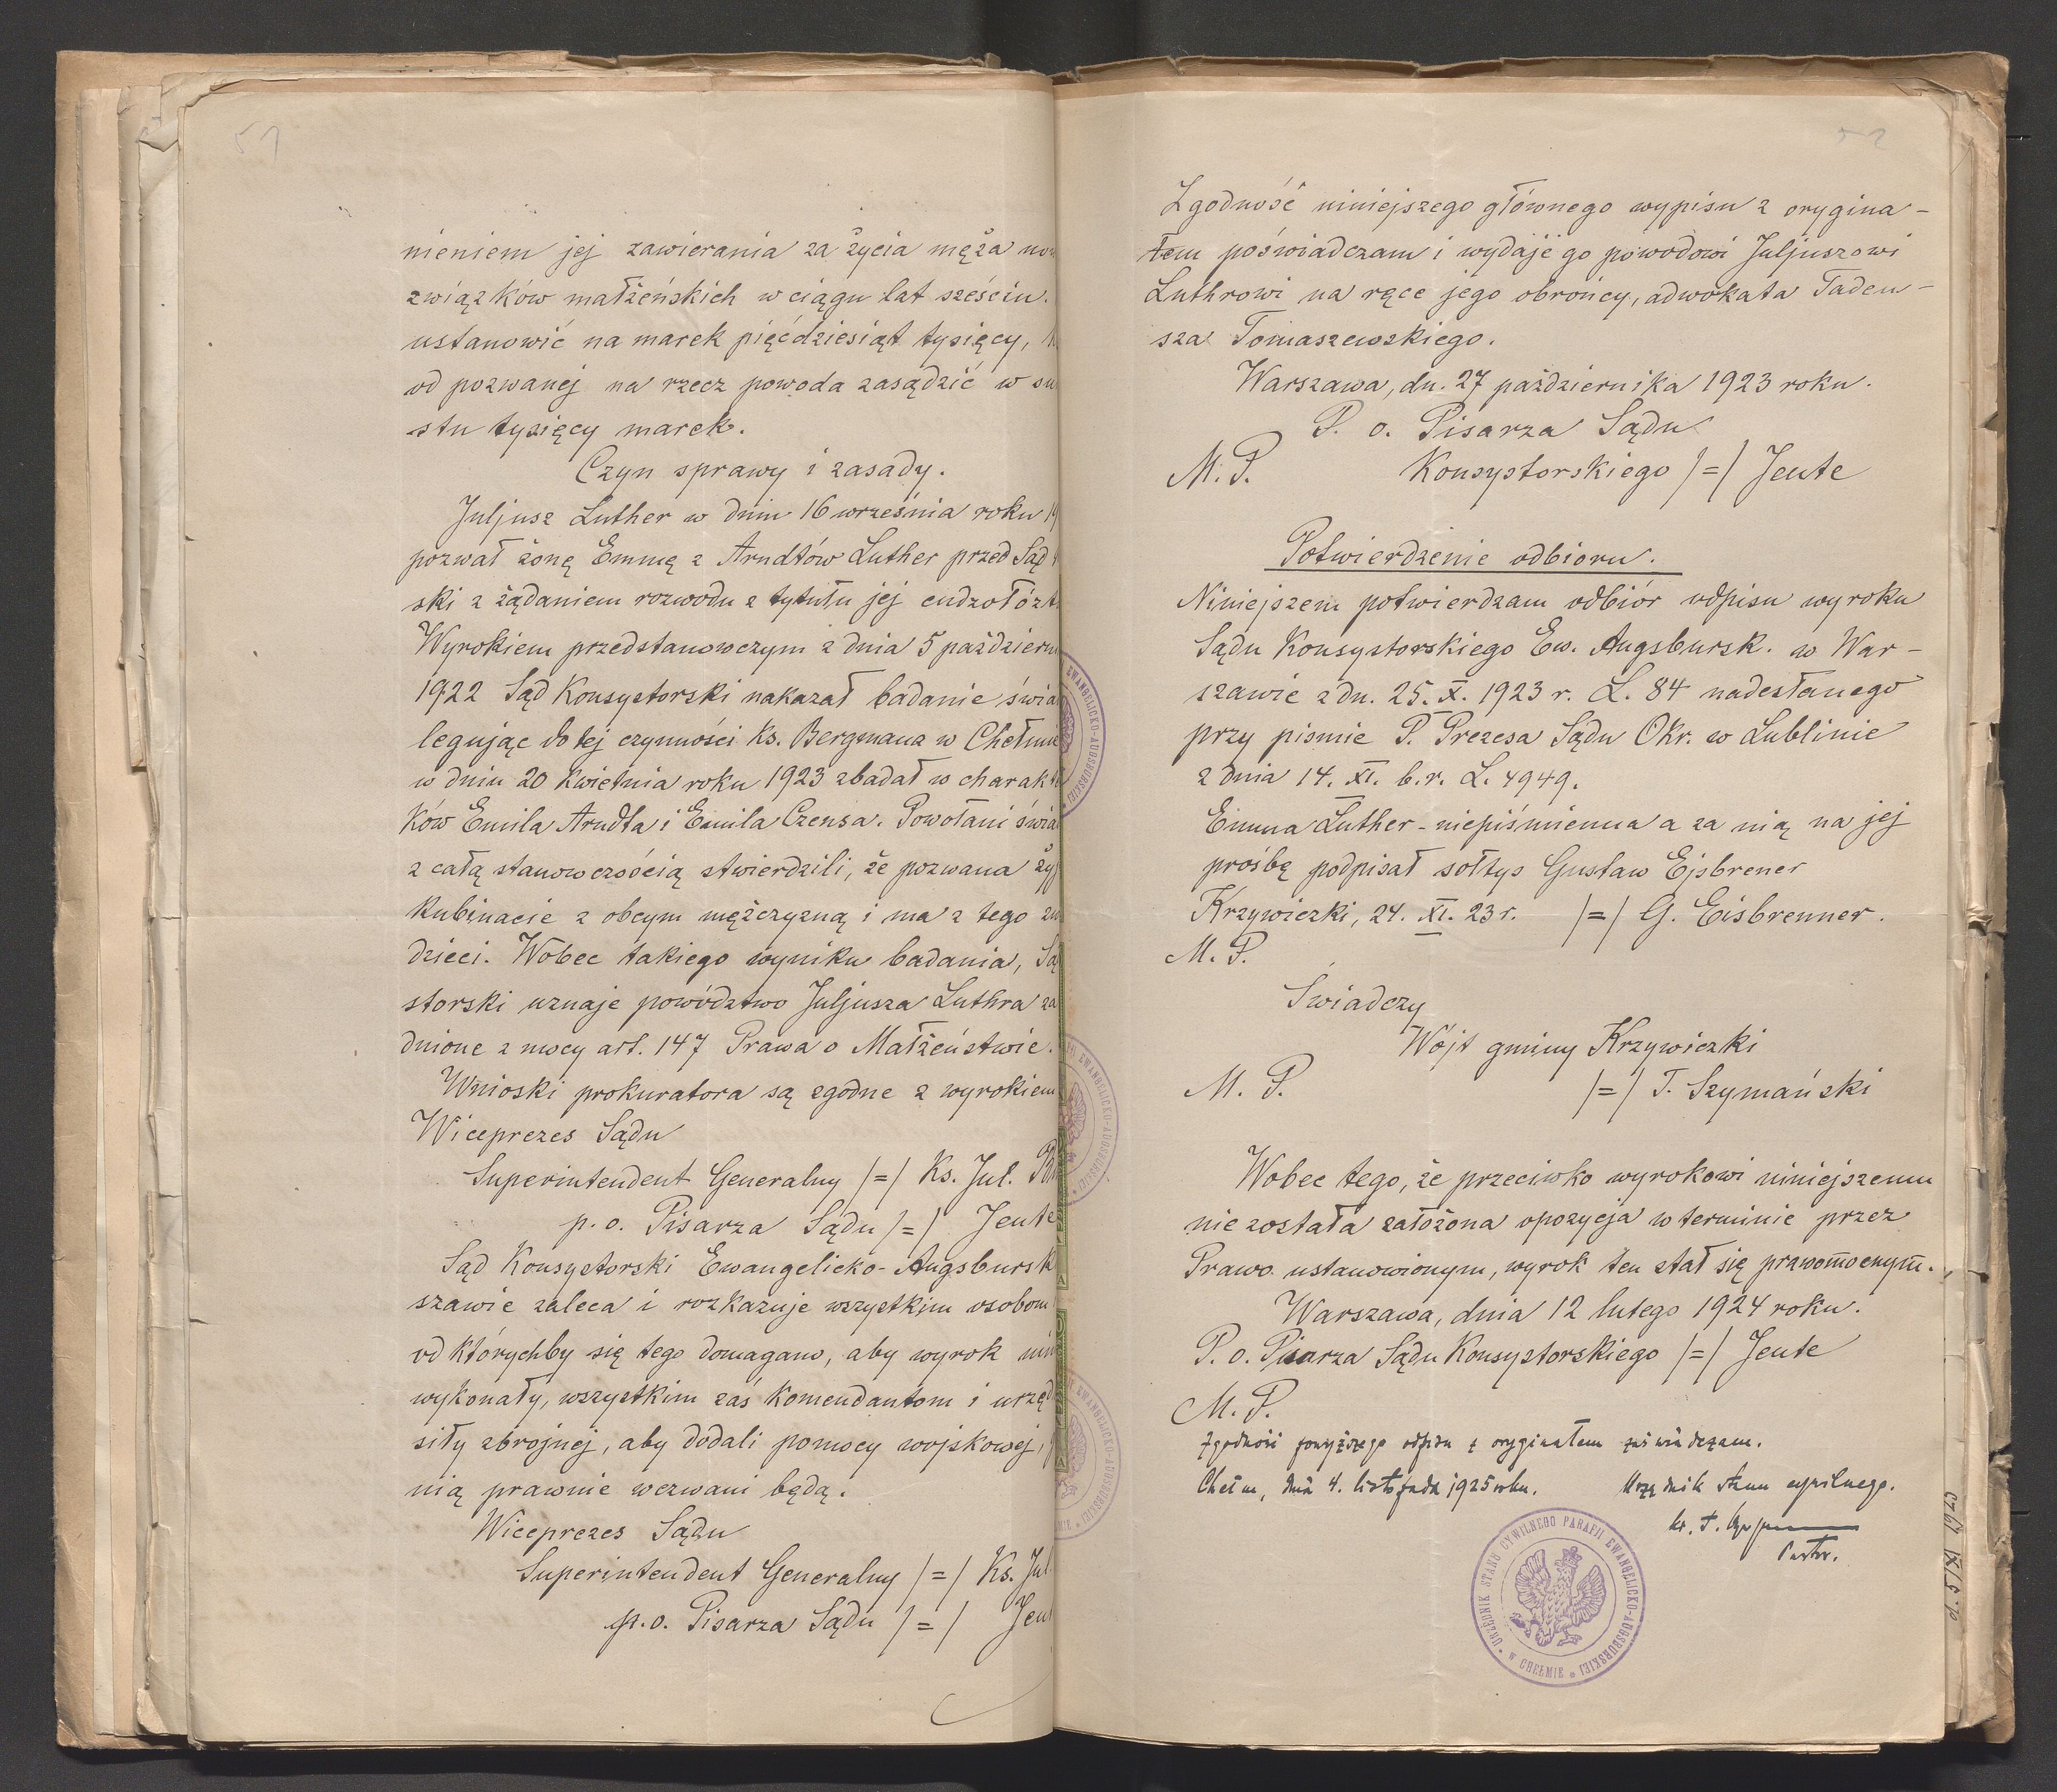 51
nieniem jej zawierania za życia męża now
związków małżeńskich w ciągu lat sześciu.
ustanowić na marek pięćdziesiąt tysięcy,
od pozwanej na rzecz powoda zasądzić w su
stu tysięcy marek.
Czyn sprawy i zasady.
Juljusz Luther w dniu 16 września roku 19
pozwał żonę Emmę z Arndtów Luther przed Sąd
ski z żądaniem rozwodu z tytułu jej cudzołózt
Wyrokiem przedstanowczym z dnia 5 październ
1922 Sąd Konsystorski nakazał badanie świa
legując do tej czynności Ks. Bergmana w Chełmie
w dniu 20 kwietnia roku 1923 zbadał w charakte
ków Emila Arndta i Emila Czensa. Powołani świa
z całą stanowczością stwierdzili, że pozwana ży
kubinacie z obcym mężczyzną i ma z tego zw
dzieci. Wobec takiego wyniku badania, Są
storski uznaje powództwo Juljusza Luthra za
dnione z mocy art. 147 Prawa o Małżeństwie.
Wnioski prokuratora są zgodne z wyrokiem
Wiceprezes Sądu
Superintendent Generalny /=/ Ks. Jul. B
p. o. Pisarza Sądu /=/ Jeute
Sąd Konsystorski Ewangelicko-Augsbursk
szawie zaleca i rozkazuje wszystkim osobom
od którychby się tego domagano, aby wyrok nin
wykonały, wszystkim zaś komendantom i urzęd
siły zbrojnej, aby dodali pomocy wojskowej,
nią prawnie wezwani będą.
Wiceprezes Sądu
Superintendent Generalny /=/ Ks. Jul
p. o. Pisarza Sądu /=/ Jeu
52
Zgodność niniejszego głównego wypisu z orygina-
łem poświadczam i wydaję go powodowi Juljuszowi
Luthrowi na ręce jego obrońcy, adwokata Tadeu-
sza Tomaszewskiego.
Warszawa, dn. 27 października 1923 roku.
P. o. Pisarza Sądu
M. P. Konsystorskiego /=/ Jeute
Potwierdzenie odbioru.
Niniejszem potwierdzam odbiór odpisu wyroku
Sądu Konsystorskiego Ew. Augsbursk. w War-
szawie z dn. 25. X. 1923 r. L. 84 nadesłanego
przy piśmie P. Prezesa Sądu Okr. w Lublinie
z dnia 14. XI. b.r. L. 4949.
Emma Luther - niepiśmienna a za nią na jej
prośbę podpisał sołtys Gustaw Ejsbrener
Krzywiczki, 24. XI. 23 r. /=/ G. Eisbrenner.
M. P.
Świadczy
Wójt gminy Krzywiczki
M. P. /=/ T. Szymański
Wobec tego, że przeciwko wyrokowi niniejszemu
nie została założona opozycja w terminie przez
Prawo ustanowionym, wyrok ten stał się prawomocnym.
Warszawa, dnia 12 lutego 1924 roku.
P. o. Pisarza Sądu Konsystorskiego /=/ Jeute
M. P.
Zgodność powyższego odpisu z oryginałem zaświadczam.
Chełm, dnia 4. listopada 1925 roku. Urzędnik stanu cywilnego.
Pastor.
URZĘDNIK STANU CYWILNEGO PARAFII EWANGELICKO-AUGSBURSKIEJ
W CHEŁMIE